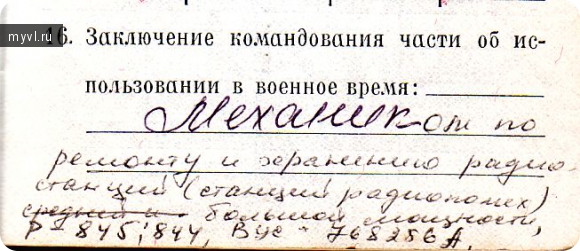 myvl.ru
16. Заключение командования части об ис-
пользовании в военное время:
Механиком по
ремонту и хранению радио-
станций (станций радиопомех)
средней и большой мощности,
Р-845; 844, ВУС-768286А,